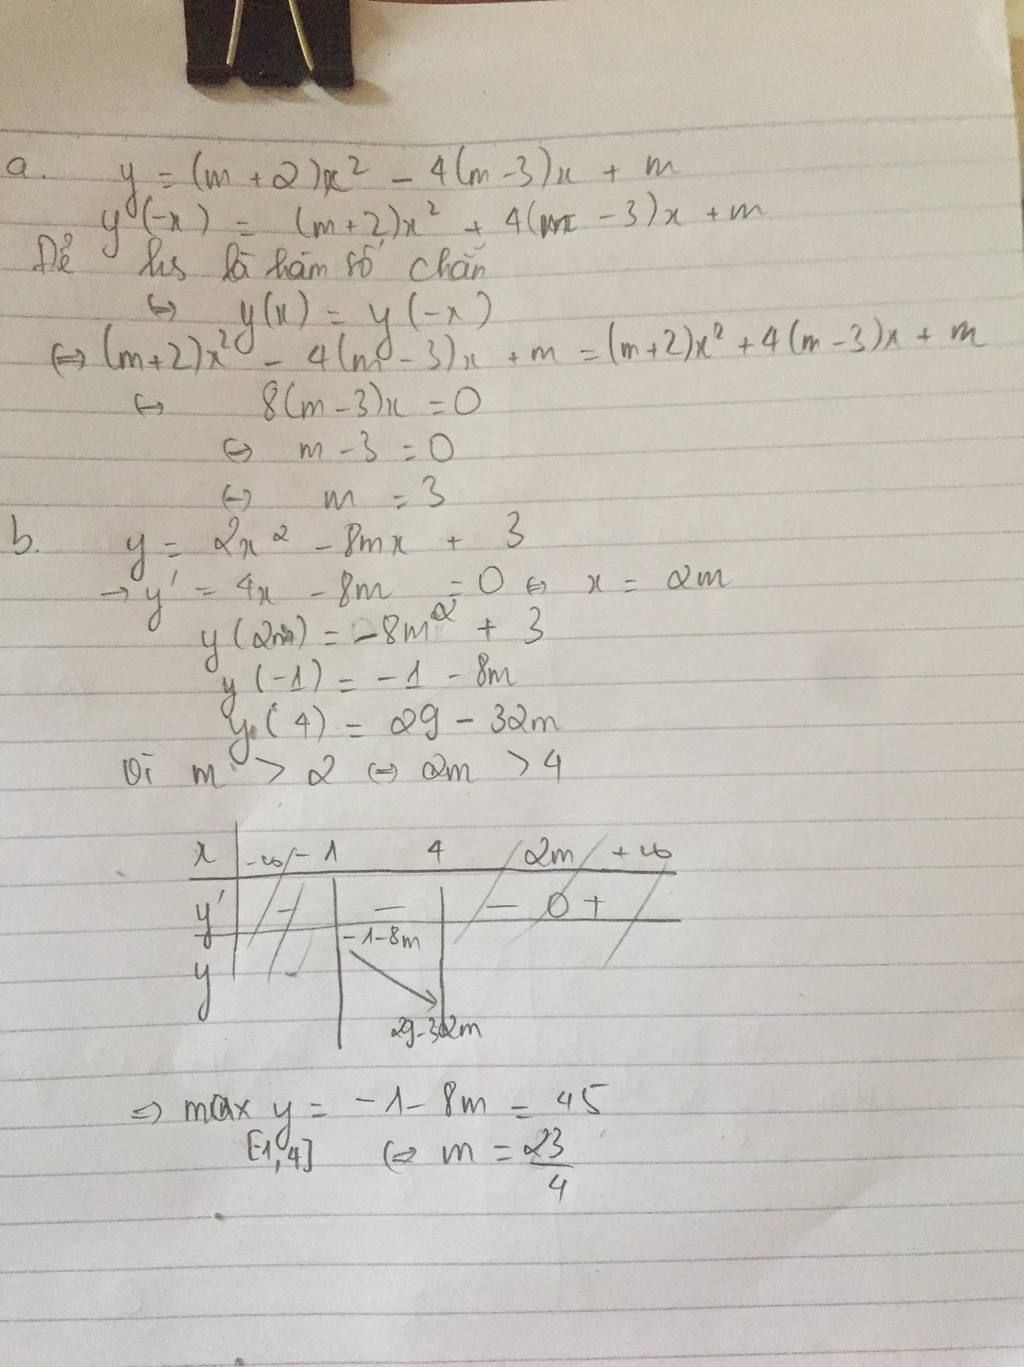 a. y = (m + 2)x² - 4(m - 3)x + m
y(-x) = (m+2)x² + 4(m - 3)x + m
Để hs là hàm số chẵn
⇔ y(x) = y(-x)
⇔ (m+2)x² - 4(m - 3)x + m = (m+2)x² + 4(m - 3)x + m
⇔ 8(m - 3)x = 0
⇔ m - 3 = 0
⇔ m = 3
b. y = 2x² - 8mx + 3
→ y' = 4x - 8m = 0 ⇔ x = 2m
y(2m) = -8m² + 3
y(-1) = -1 - 8m
y(4) = 29 - 32m
Vì m > 2 ⇔ 2m > 4
x -∞ -1 4 2m +∞
y' - - - 0 +
-1-8m
y
29-32m
⇒ max y = -1 - 8m = 45
[-1,4] ⇔ m = 23/4